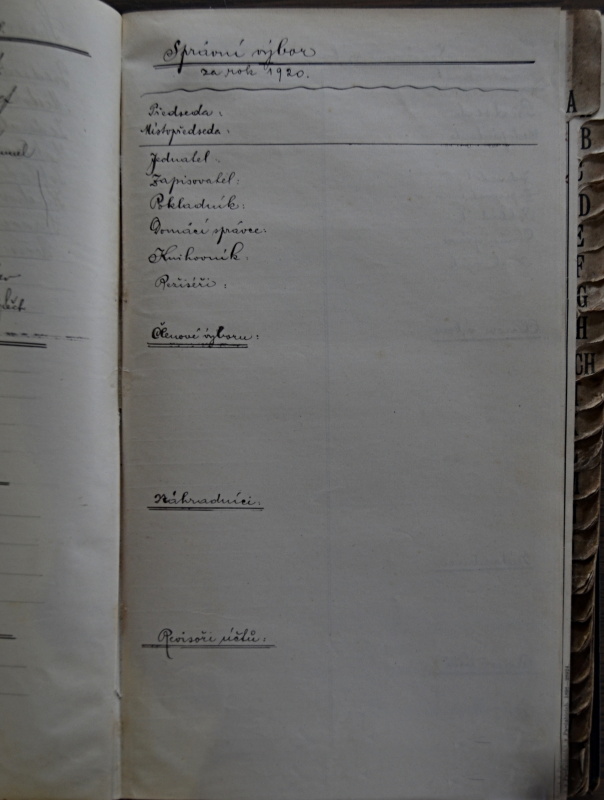 Správní výbor
za rok 1920.
Předseda:
Místopředseda:
Jednatel
Zapisovatel:
Pokladník:
Domácí správce:
Knihovník:
Režiséři:
Členové výboru:
Náhradníci:
Revisoři účtů:
A
B
D
E
F
G
H
CH
I